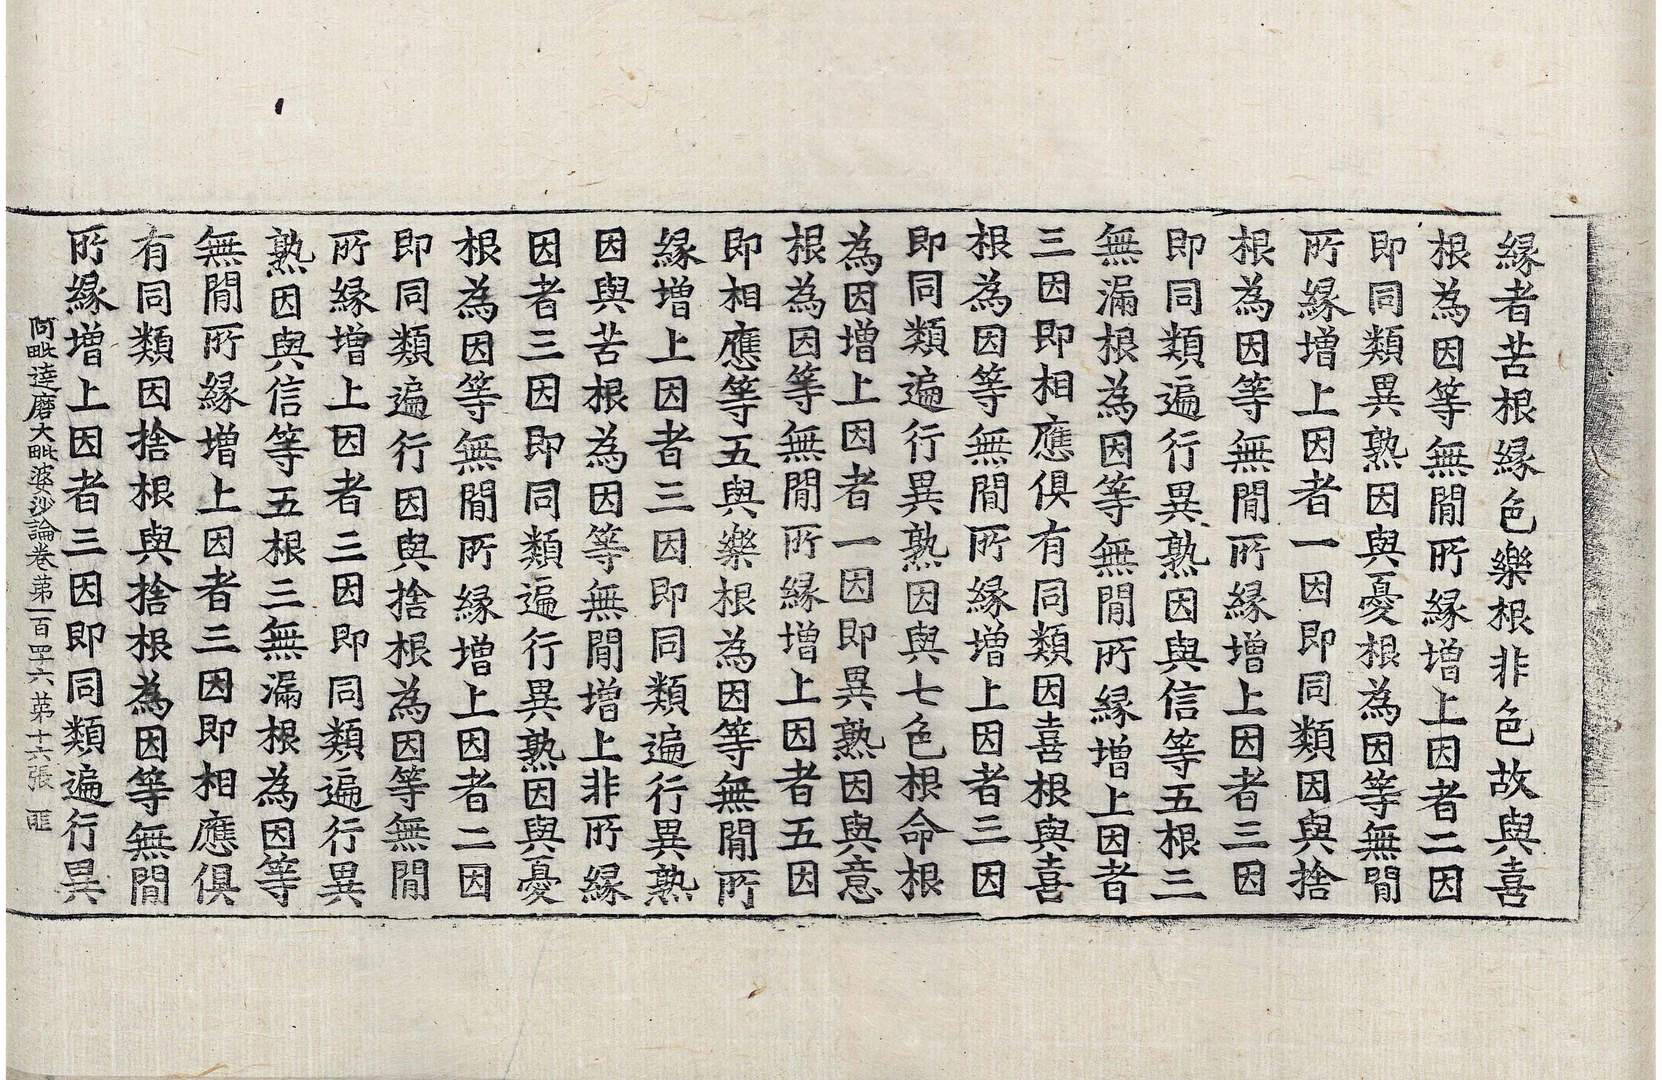 縁者苦根縁色樂根非色故與喜
根為因等無間所縁增上因者二因
即同類異熟因與憂根為因等無間
所縁增上因者一因即同類因與捨
根為因等無間所縁增上因者三因
即同類遍行異熟因與信等五根三
無漏根為因等無間所縁增上因者
三因即相應俱有同類因喜根與喜
根為因等無間所縁增上因者三因
即同類遍行異熟因與七色根命根
為因增上因者一因即異熟因與意
根為因等無間所縁增上因者五因
即相應等五與樂根為因等無間所
縁增上因者三因即同類遍行異熟
因與苦根為因等無間增上非所縁
因者三因即同類遍行異熟因與憂
根為因等無間所縁增上因者二因
即同類遍行因與捨根為因等無間
所縁增上因者三因即同類遍行異
熟因與信等五根三無漏根為因等
無間所縁增上因者三因即相應俱
有同類因捨根與捨根為因等無間
所縁增上因者三因即同類遍行異
阿毗達磨大毗婆沙論卷第一百四十六 第十六張 匪